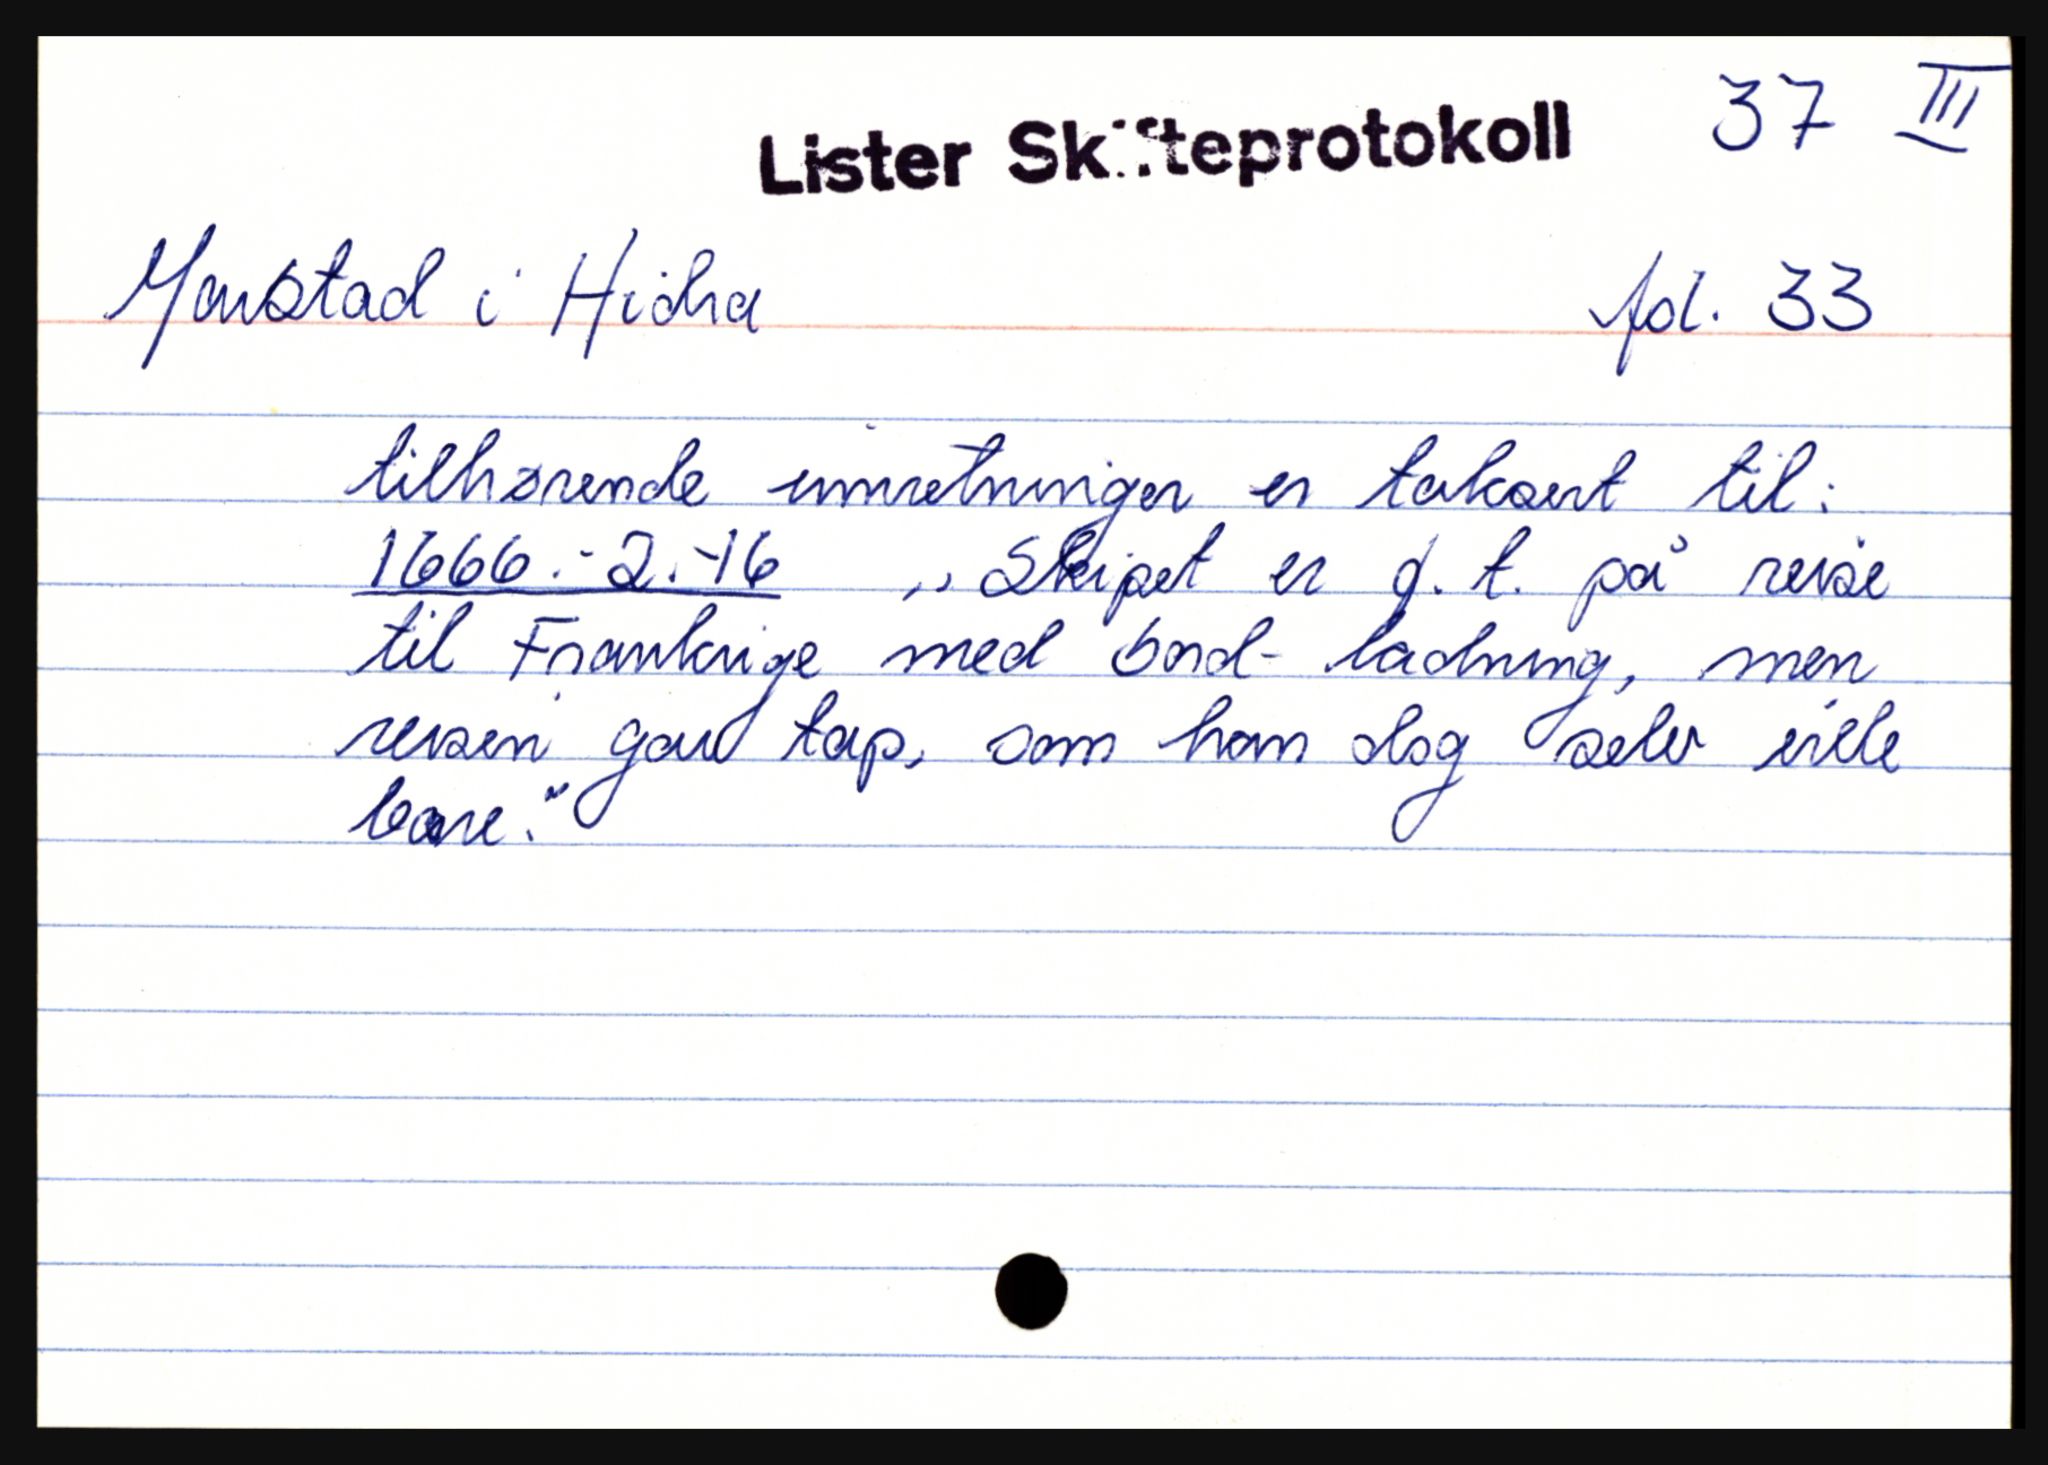 37 III
Lister Skifteprotokoll
Monstad i Hidra fol. 33
tilhørende innretninger er taksert til:
1666.-2.-16 „Skipet er d. t. på reise
til Frankrige med bord-ladning, men
reisen gav tap, som han dog selv ville
bære."